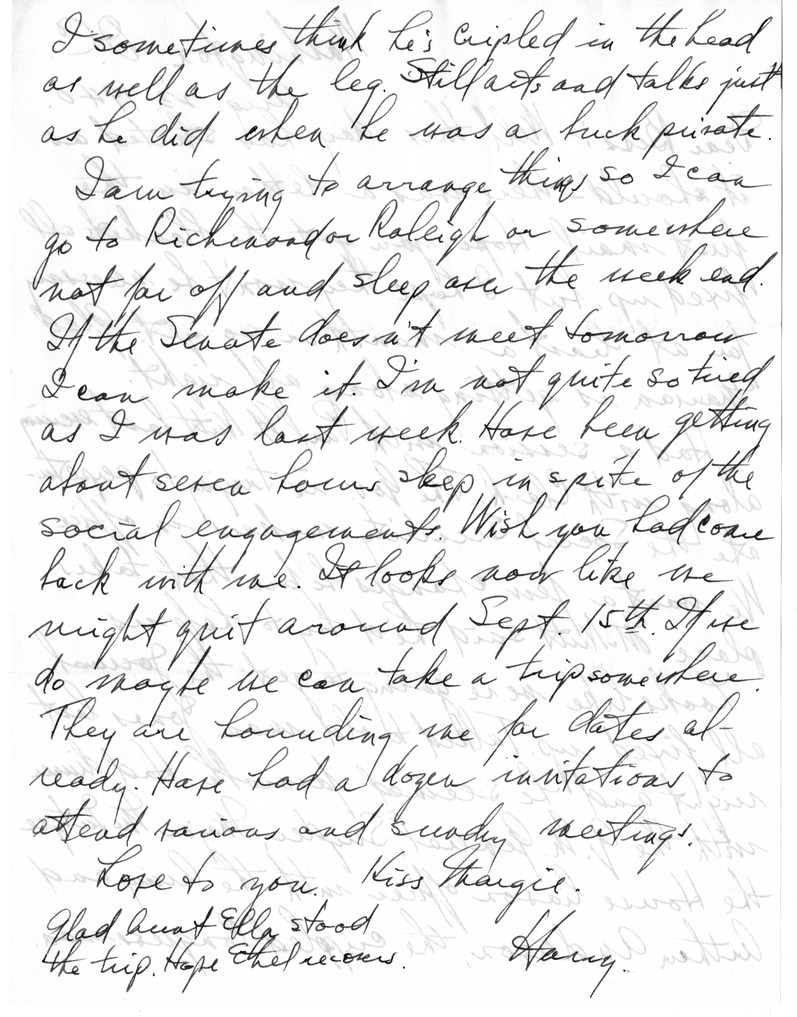 I sometimes think he's cripled in the head
as well as the leg. Still acts and talks just
as he did when he was a buck private.
I am trying to arrange things so I can
go to Richmond or Raleigh or somewhere
not far off and sleep over the week end.
If the Senate doesn't meet tomorrow
I can make it. I'm not quite so tired
as I was last week. Have been getting
about seven hours sleep in spite of the
social engagements. Wish you had come
back with me. It looks now like we
might quit around Sept. 15th. If we
do maybe we can take a trip somewhere.
They are hounding me for dates al-
ready. Have had a dozen invitations to
attend various and sundry meetings.
Love to you. Kiss Margie.
Harry.
Glad Aunt Ella stood
the trip. Hope Ethel recovers.